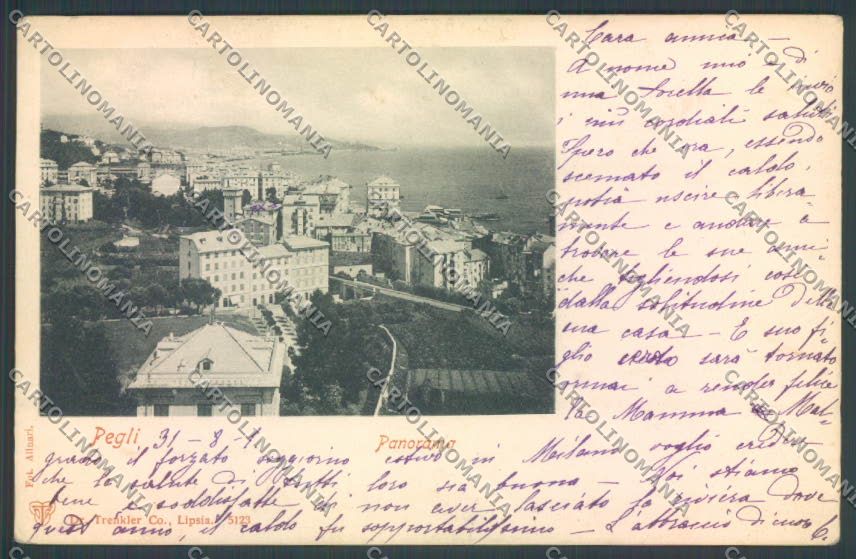 Cara amica —
A nome mio e di
mia sorella le invio
i più cordiali saluti
Spero che ora, essendo
scemato il caldo,
potrà uscire libera-
mente e andare a
trovare le sue ami-
che togliendosi così
dalla solitudine della
sua casa — E suo fi-
glio sarà tornato
ormai a render felice
la Mamma — Mal-
Pegli 31 - 8 - 1
Panorama
grado il forzato soggiorno estivo in Milano voglio credere
che la salute di tutti loro sia buona — Noi stiamo
bene e soddisfatte di non aver lasciato la riviera dove
quest'anno, il caldo fu sopportabilissimo — L'abbraccio di cuore
Fot. Alinari.
Dr. Trenkler Co., Lipsia. 5123
CARTOLINOMANIA